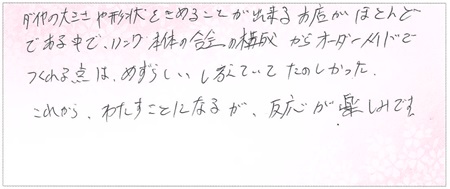 ダイヤの大きさや形状をきめることが出来るお店がほとんど
である中で、リング本体の合金の構成からオーダーメイドで
つくれる点は、めずらしいし考えていてたのしかった。
これから、わたすことになるが、反応が楽しみです